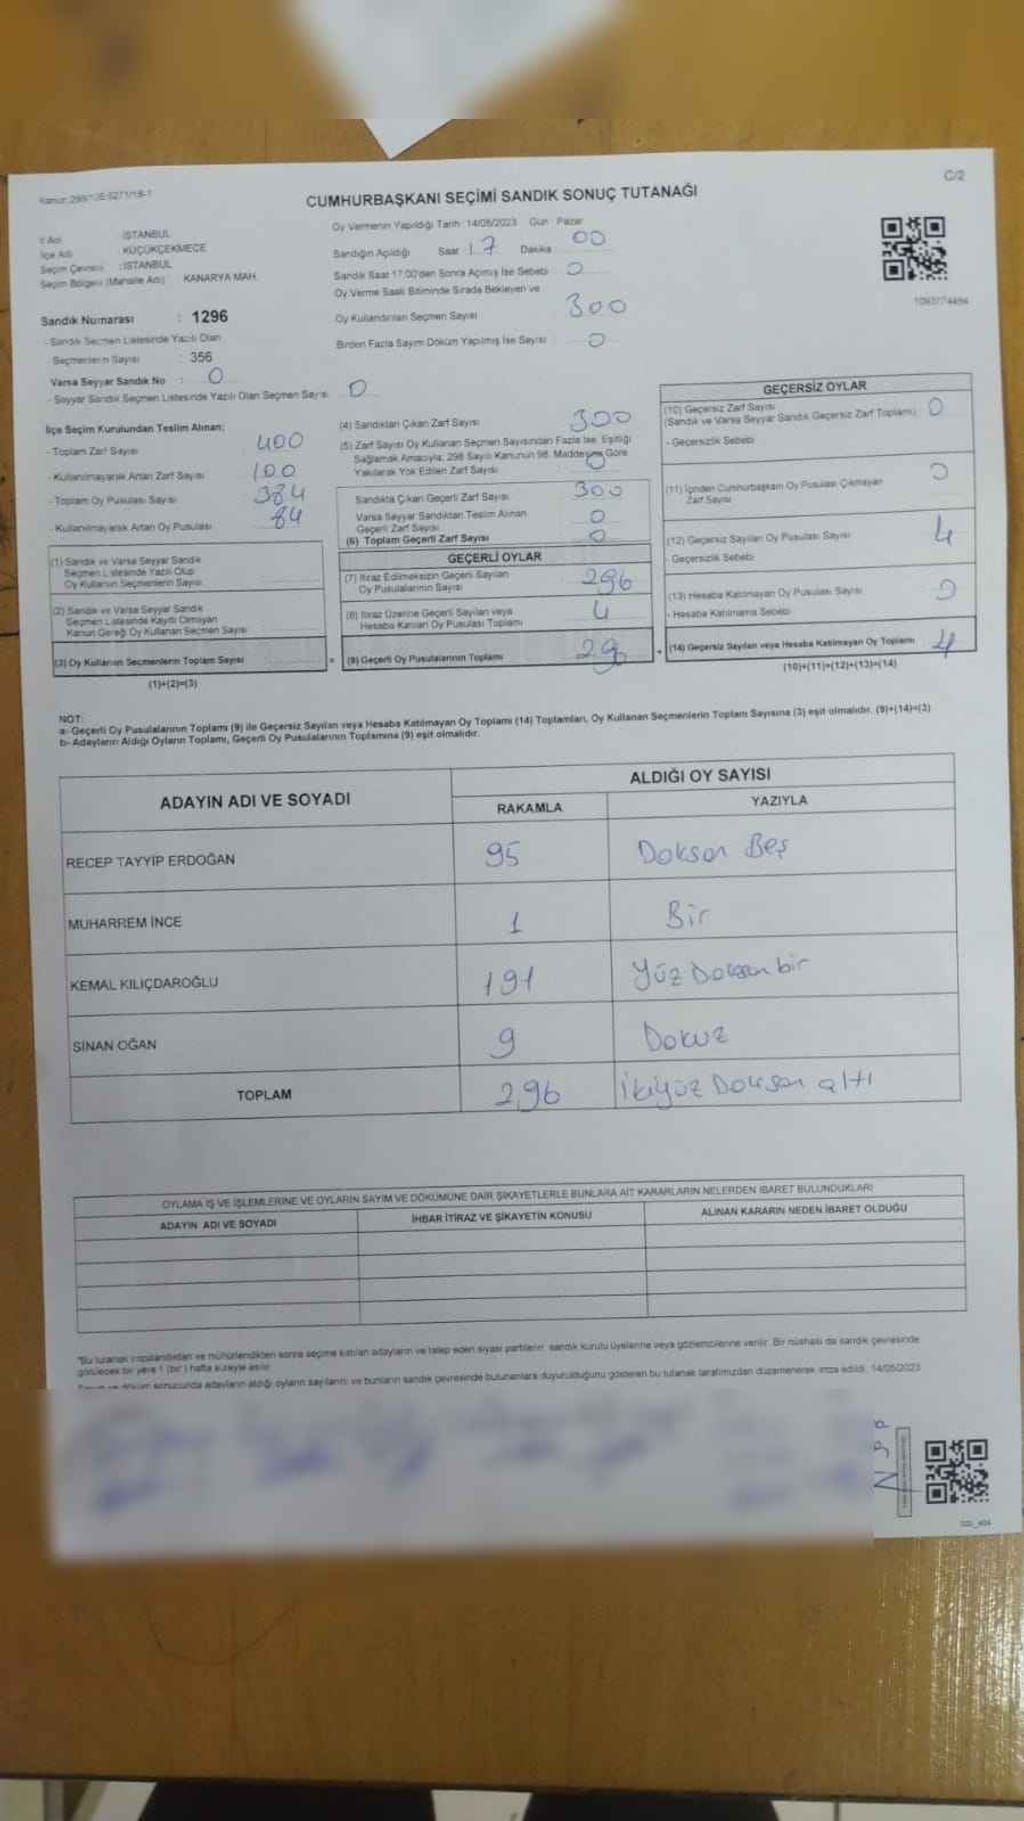 C/2
CUMHURBAŞKANI SEÇİMİ SANDIK SONUÇ TUTANAĞI
Oy Vermenin Yapıldığı Tarih: 14/05/2023 Gün Pazar
İl Adı : İSTANBUL
İlçe Adı KÜÇÜKÇEKMECE
Seçim Çevresi : İSTANBUL
Seçim Bölgesi (Mahalle Adı) KANARYA MAH.
Sandığın Açıldığı Saat 17 Dakika 00
Sandık Saat 17:00'den Sonra Açılmış İse Sebebi 0
Oy Verme Saati Bitiminde Sırada Bekleyen ve
Oy Kullandırılan Seçmen Sayısı 300
Birden Fazla Sayım Döküm Yapılmış İse Sayısı 0
Sandık Numarası : 1296
- Sandık Seçmen Listesinde Yazılı Olan
Seçmenlerin Sayısı : 356
Varsa Seyyar Sandık No : 0
- Seyyar Sandık Seçmen Listesinde Yazılı Olan Seçmen Sayısı 0
İlçe Seçim Kurulundan Teslim Alınan:
- Toplam Zarf Sayısı 400
- Kullanılmayarak Artan Zarf Sayısı 100
- Toplam Oy Pusulası Sayısı 384
- Kullanılmayarak Artan Oy Pusulası 84
(1) Sandık ve Varsa Seyyar Sandık
Seçmen Listesinde Yazılı Olup
Oy Kullanan Seçmenlerin Sayısı
(2) Sandık ve Varsa Seyyar Sandık
Seçmen Listesinde Kayıtlı Olmayan
Kanun Gereği Oy Kullanan Seçmen Sayısı
(3) Oy Kullanan Seçmenlerin Toplam Sayısı
(1)+(2)=(3)
(4) Sandıktan Çıkan Zarf Sayısı 300
(5) Zarf Sayısı Oy Kullanan Seçmen Sayısından Fazla İse, Eşitliği
Sağlamak Amacıyla; 298 Sayılı Kanunun 98. Maddesine Göre
Yakılarak Yok Edilen Zarf Sayısı 0
Sandıkta Çıkan Geçerli Zarf Sayısı 300
Varsa Seyyar Sandıktan Teslim Alınan
Geçerli Zarf Sayısı 0
(6) Toplam Geçerli Zarf Sayısı 0
GEÇERLİ OYLAR
(7) İtiraz Edilmeksizin Geçerli Sayılan
Oy Pusulalarının Sayısı 296
(8) İtiraz Üzerine Geçerli Sayılan veya
Hesaba Katılan Oy Pusulası Toplamı 4
= (9) Geçerli Oy Pusulalarının Toplamı
GEÇERSİZ OYLAR
(10) Geçersiz Zarf Sayısı
(Sandık ve Varsa Seyyar Sandık Geçersiz Zarf Toplamı) 0
- Geçersizlik Sebebi
(11) İçinden Cumhurbaşkanı Oy Pusulası Çıkmayan
Zarf Sayısı 0
(12) Geçersiz Sayılan Oy Pusulası Sayısı 4
- Geçersizlik Sebebi
(13) Hesaba Katılmayan Oy Pusulası Sayısı 0
- Hesaba Katılmama Sebebi
+ (14) Geçersiz Sayılan veya Hesaba Katılmayan Oy Toplamı 4
(10)+(11)+(12)+(13)=(14)
NOT:
a- Geçerli Oy Pusulalarının Toplamı (9) ile Geçersiz Sayılan veya Hesaba Katılmayan Oy Toplamı (14) Toplamları, Oy Kullanan Seçmenlerin Toplam Sayısına (3) eşit olmalıdır. (9)+(14)=(3)
b- Adayların Aldığı Oyların Toplamı, Geçerli Oy Pusulalarının Toplamına (9) eşit olmalıdır.
ADAYIN ADI VE SOYADI
ALDIĞI OY SAYISI
RAKAMLA YAZIYLA
RECEP TAYYİP ERDOĞAN 95 Doksan Beş
MUHARREM İNCE 1 Bir
KEMAL KILIÇDAROĞLU 191 Yüz Doksan bir
SİNAN OĞAN 9 Dokuz
TOPLAM 296 İkiyüz Doksan altı
OYLAMA İŞ VE İŞLEMLERİNE VE OYLARIN SAYIM VE DÖKÜMÜNE DAİR ŞİKAYETLERLE BUNLARA AİT KARARLARIN NELERDEN İBARET BULUNDUKLARI
ADAYIN ADI VE SOYADI İHBAR İTİRAZ VE ŞİKAYETİN KONUSU ALINAN KARARIN NEDEN İBARET OLDUĞU
"Bu tutanak imzalandıktan ve mühürlendikten sonra seçime katılan adayların ve talep eden siyasi partilerin sandık kurulu üyelerine veya gözlemcilerine verilir. Bir nüshası da sandık çevresinde
görülecek bir yere 1 (bir) hafta süreyle asılır.
döküm sonucunda adayların aldığı oyların sayılarını ve bunların sandık çevresinde bulunanlara duyurulduğunu gösteren bu tutanak tarafımızdan düzenlenerek imza edildi. 14/05/2023